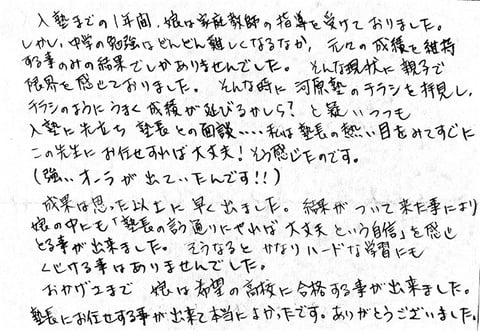 入塾までの1年間、娘は家庭教師の指導を受けておりました。
しかし、中学の勉強はどんどん難しくなるなか、元々の成績を維持
する事のみの結果でしかありませんでした。そんな現状に親子で
限界を感じておりました。そんな時に河原塾のチラシを拝見し、
チラシのようにうまく成績が延びるかしら?と疑いつつも
入塾に先立ち塾長との面談‥‥私は塾長の熱い目をみてすぐに
この先生にお任せすれば大丈夫!そう感じたのです。
(強いオーラが出ていたんです!!)
成果は思った以上に早く出ました。結果がついて来た事により
娘の中にも「塾長の言う通りにやれば大丈夫という自信」を感じ
とる事が出来ました。そうなるとかなりハードな学習にも
くじける事はありませんでした。
おかげさまで娘は希望の高校に合格する事が出来ました。
塾長にお任せする事が出来て本当によかったです。ありがとうございました。